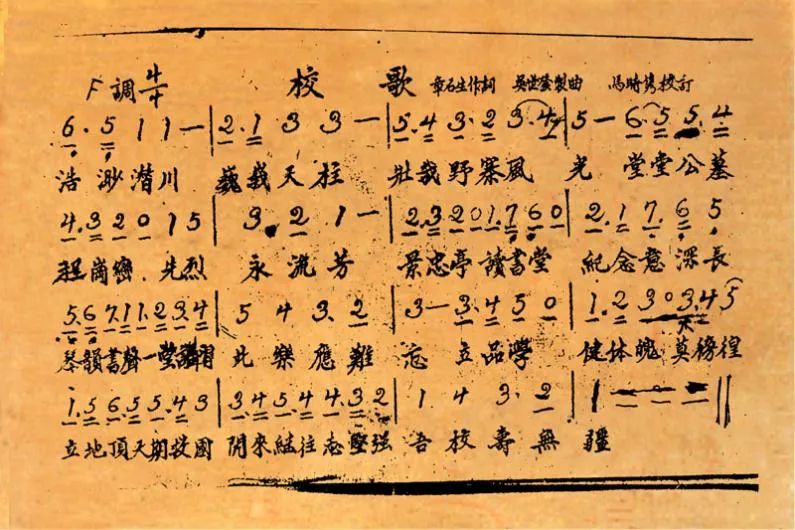 F調 4/4 校 歌 章石生作詞 吳世 製曲 馬時雋校訂
6. 5 1 1 — | 2. 1 3 3 — | 5. 4 3. 2 3. 4 | 5 — 6. 5 5. 4
浩 渺 潛 川 巍 峩 天 柱 壯 哉 野 寨 風 光 堂 堂 公 墓
4. 3 2 0 1 5 | 3. 2 1 — | 2. 3 2 0 1. 7 6 0 | 2. 1 7. 6 5
崗 巒 先 烈 永 流 芳 景 忠 亭 讀 書 堂 紀 念 意 深 長
5. 6 7. 1 1. 2 3. 4 | 5 4 3. 2 | 3 — 3. 4 5 0 | 1. 2 3 0 3. 4 5
琴 韻 書 聲 一 堂 講 習 此 樂 應 難 忘 立 品 學 健 体 魄 莫 徬 徨
1. 5 6. 5 5. 4 3 | 3. 4 5. 4 4. 3 2 | 1 4 3. 2 | 1 — — — ||
立 地 頂 天 期 扶 國 開 來 結 往 志 堅 强 吾 校 壽 無 疆